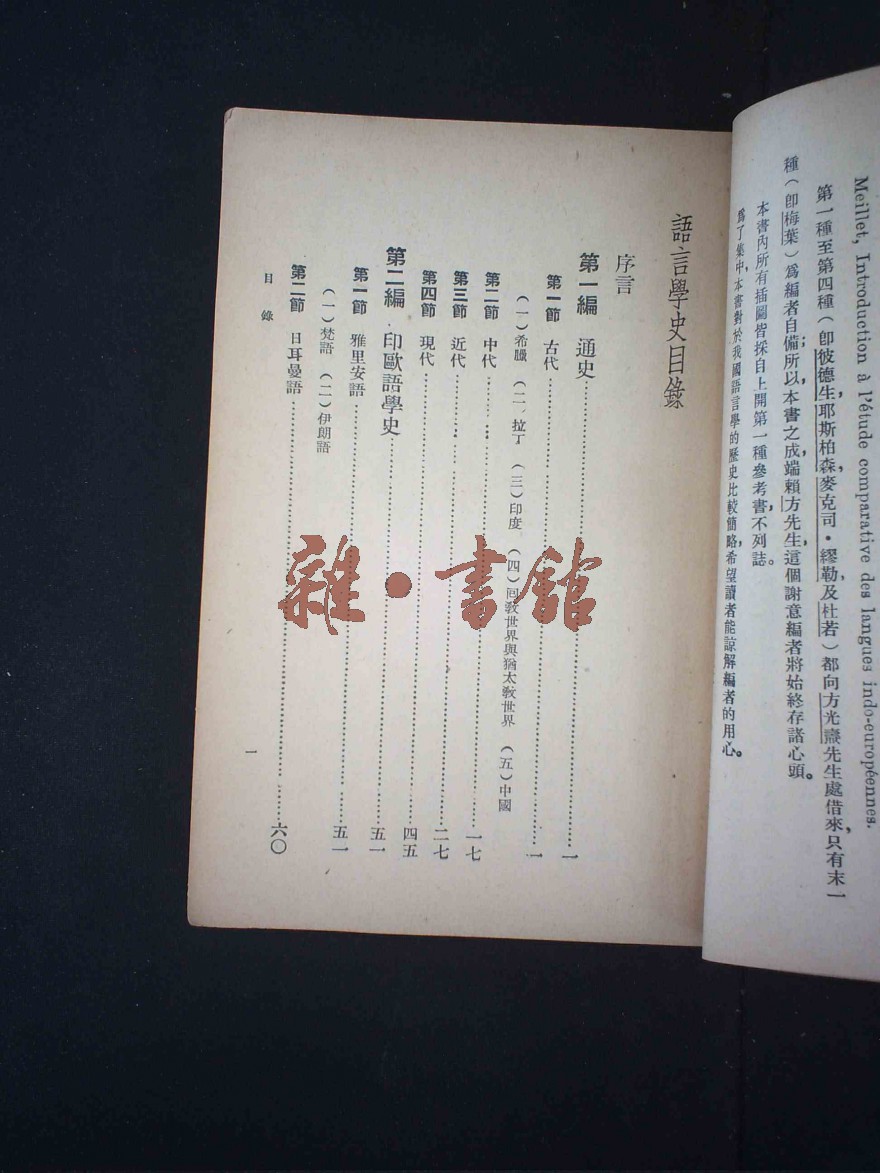 Meillet, Introduction à l'étude comparative des langues indo-européennes.
第一種至第四種（卽彼德生，耶斯柏森，麥克司·繆勒，及杜若）都向方光燾先生處借來，只有末一
種（卽梅葉）爲編者自備；所以本書之成，端賴方先生，這個謝意編者將始終存諸心頭。
本書內所有插圖皆採自上開第一種參考書，不列誌。
爲了集中，本書對於我國語言學的歷史比較簡略，希望讀者能諒解編者的用心。
語言學史目錄
序言
第一編 通史……一
第一節 古代……一
（一）希臘 （二）拉丁 （三）印度 （四）回敎世界與猶太敎世界 （五）中國
第二節 中代……一七
第三節 近代……二七
第四節 現代……四五
第二編 印歐語學史……五一
第一節 雅里安語……五一
（一）梵語 （二）伊朗語
第二節 日耳曼語……六〇
目錄
一
雜·書館